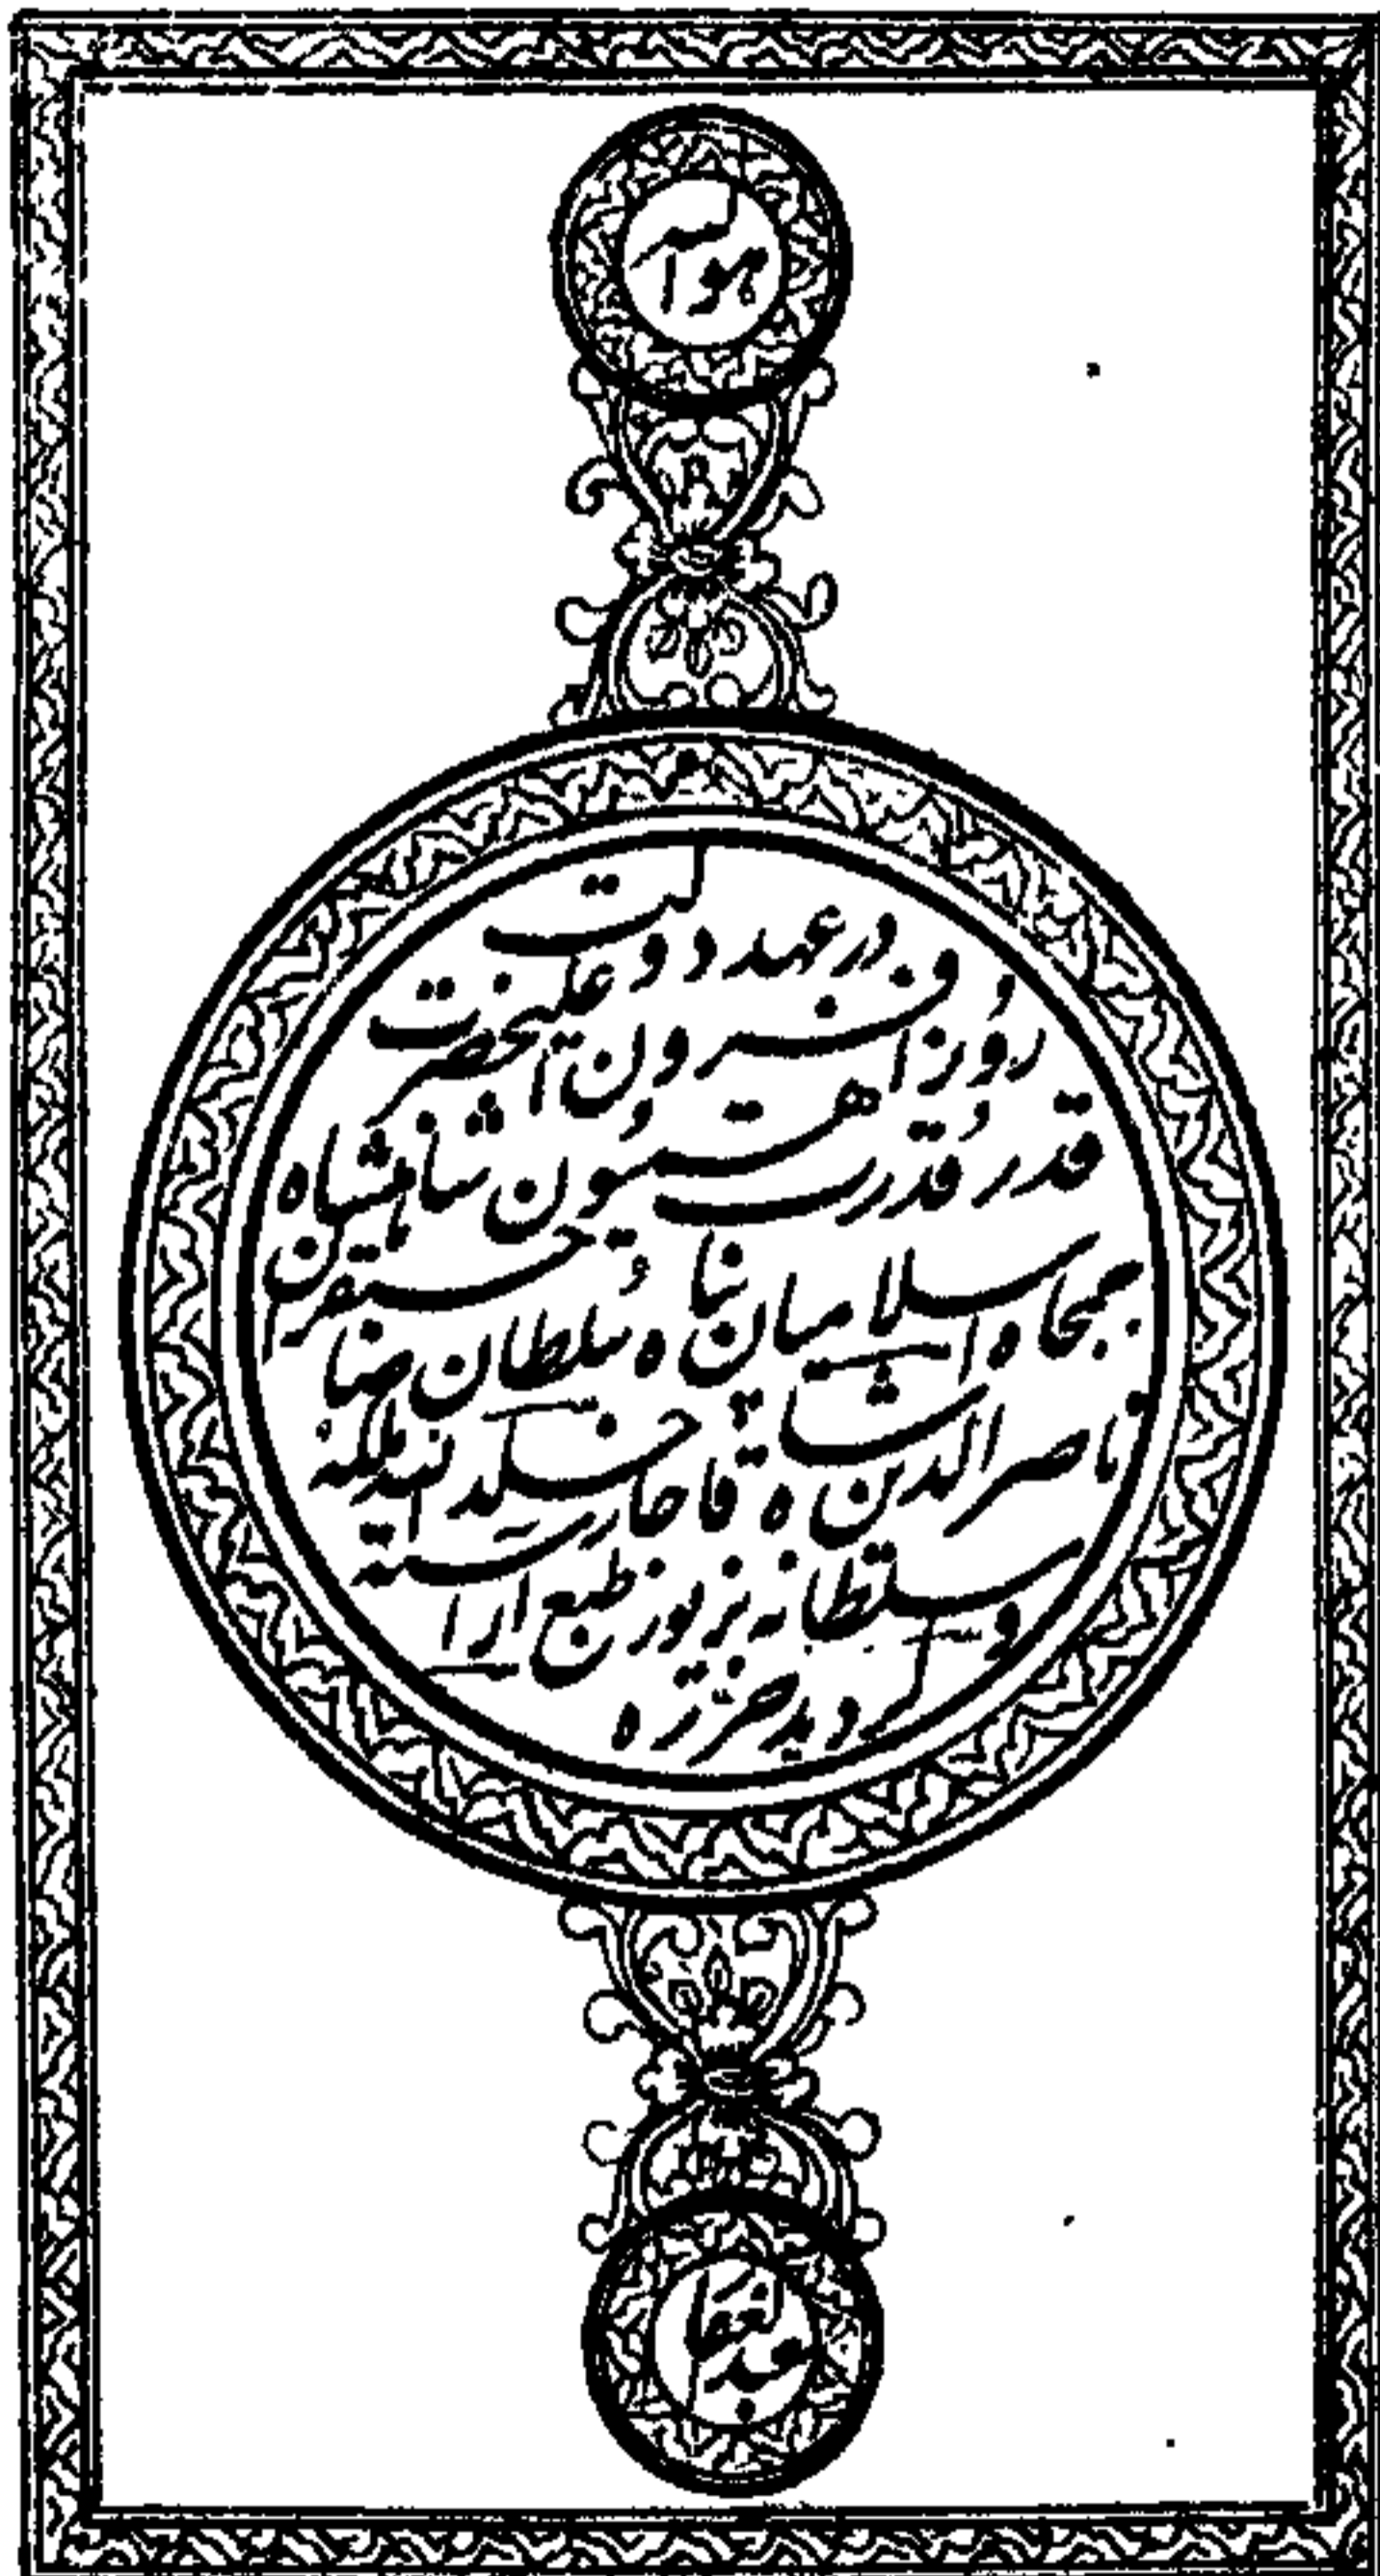 هو الله
در عهد دولت
روز افزون اعلیحضرت
قدر قدرت همیون شاهنشاه
جمجاه اسلامیان پناه و سلطان
ناصر الدین پادشاه قاجار خلد الله ملکه
و سلطانه بزیور طبع آراسته
گردید